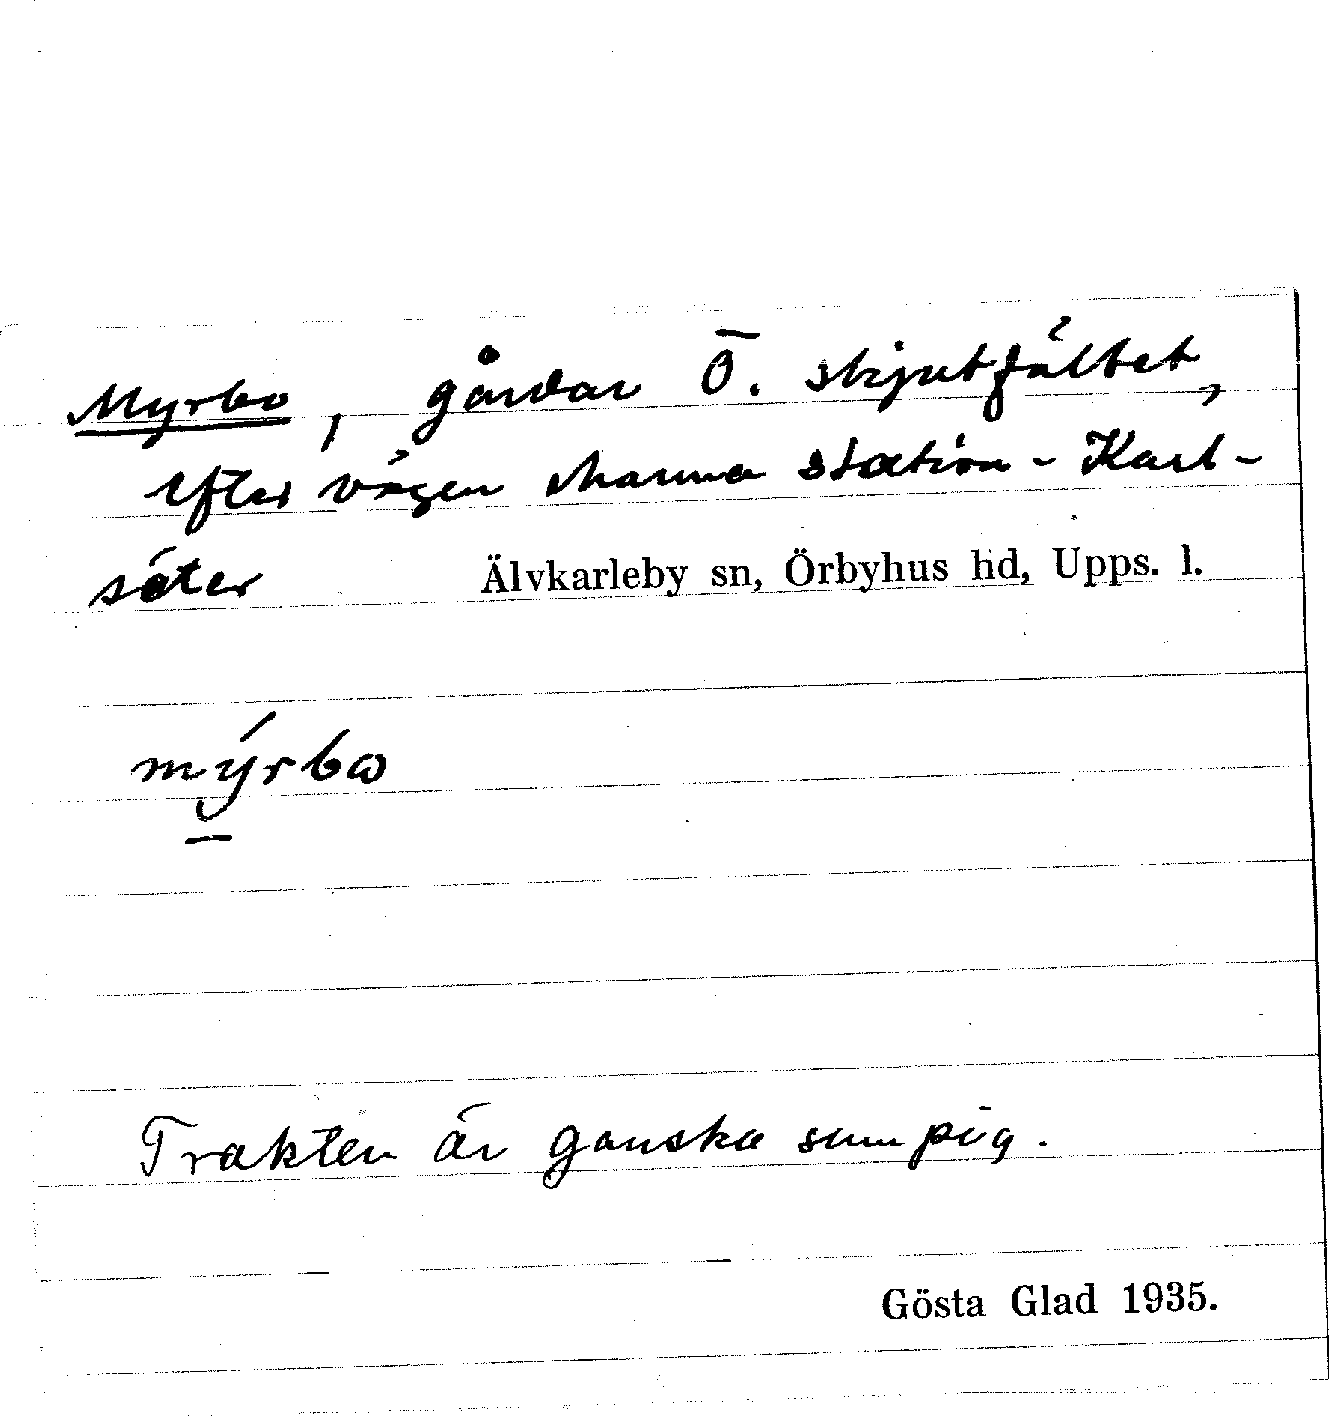 Myrbo, gårdar Ö. skjutfältet,
efter vägen Marma station - Karl-
säter Älvkarleby sn, Örbyhus hd, Upps. l.
mýrbω
Trakten är ganska sumpig.
Gösta Glad 1935.